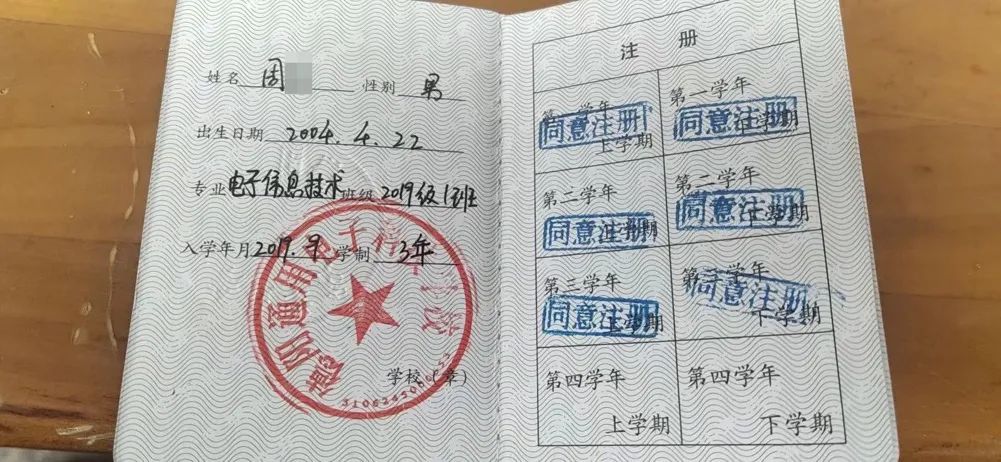 姓名 周 性别 男
出生日期 2004.4.22
专业 电子信息技术 班级 2019级1班
入学年月 2019.9 学制 3年
德阳通用电子科技学校
学校（章）
注 册
第一学年 上学期 同意注册
第一学年 下学期 同意注册
第二学年 上学期 同意注册
第二学年 下学期 同意注册
第三学年 上学期 同意注册
第三学年 下学期 同意注册
第四学年 上学期
第四学年 下学期